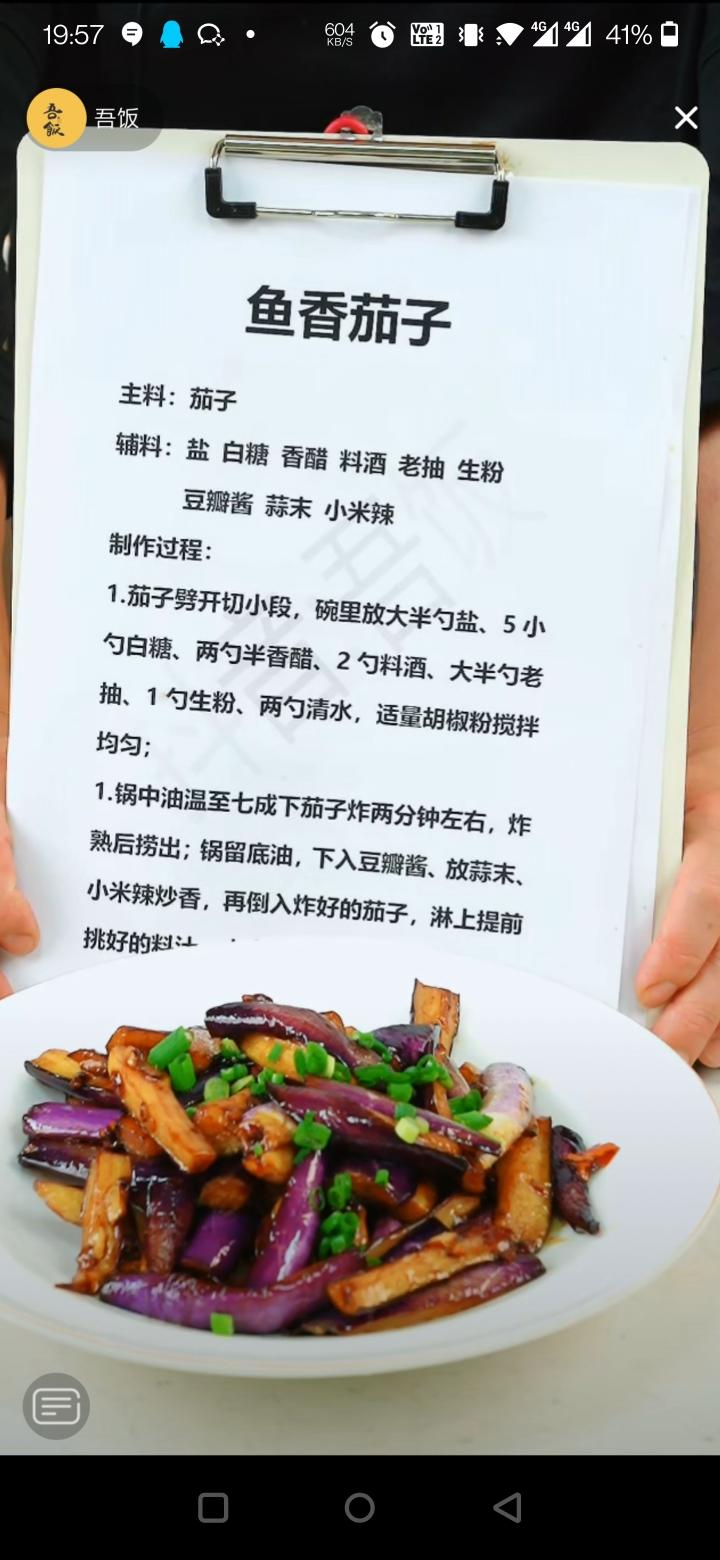 19:57
604
KB/S
Vo)) 1
LTE 2
4G
4G
41%
吾饭
吾饭
鱼香茄子
主料：茄子
辅料：盐 白糖 香醋 料酒 老抽 生粉
豆瓣酱 蒜末 小米辣
制作过程：
1.茄子劈开切小段，碗里放大半勺盐、5 小
勺白糖、两勺半香醋、2 勺料酒、大半勺老
抽、1 勺生粉、两勺清水，适量胡椒粉搅拌
均匀；
1.锅中油温至七成下茄子炸两分钟左右，炸
熟后捞出；锅留底油，下入豆瓣酱、放蒜末、
小米辣炒香，再倒入炸好的茄子，淋上提前
挑好的料汁
抖音吾饭